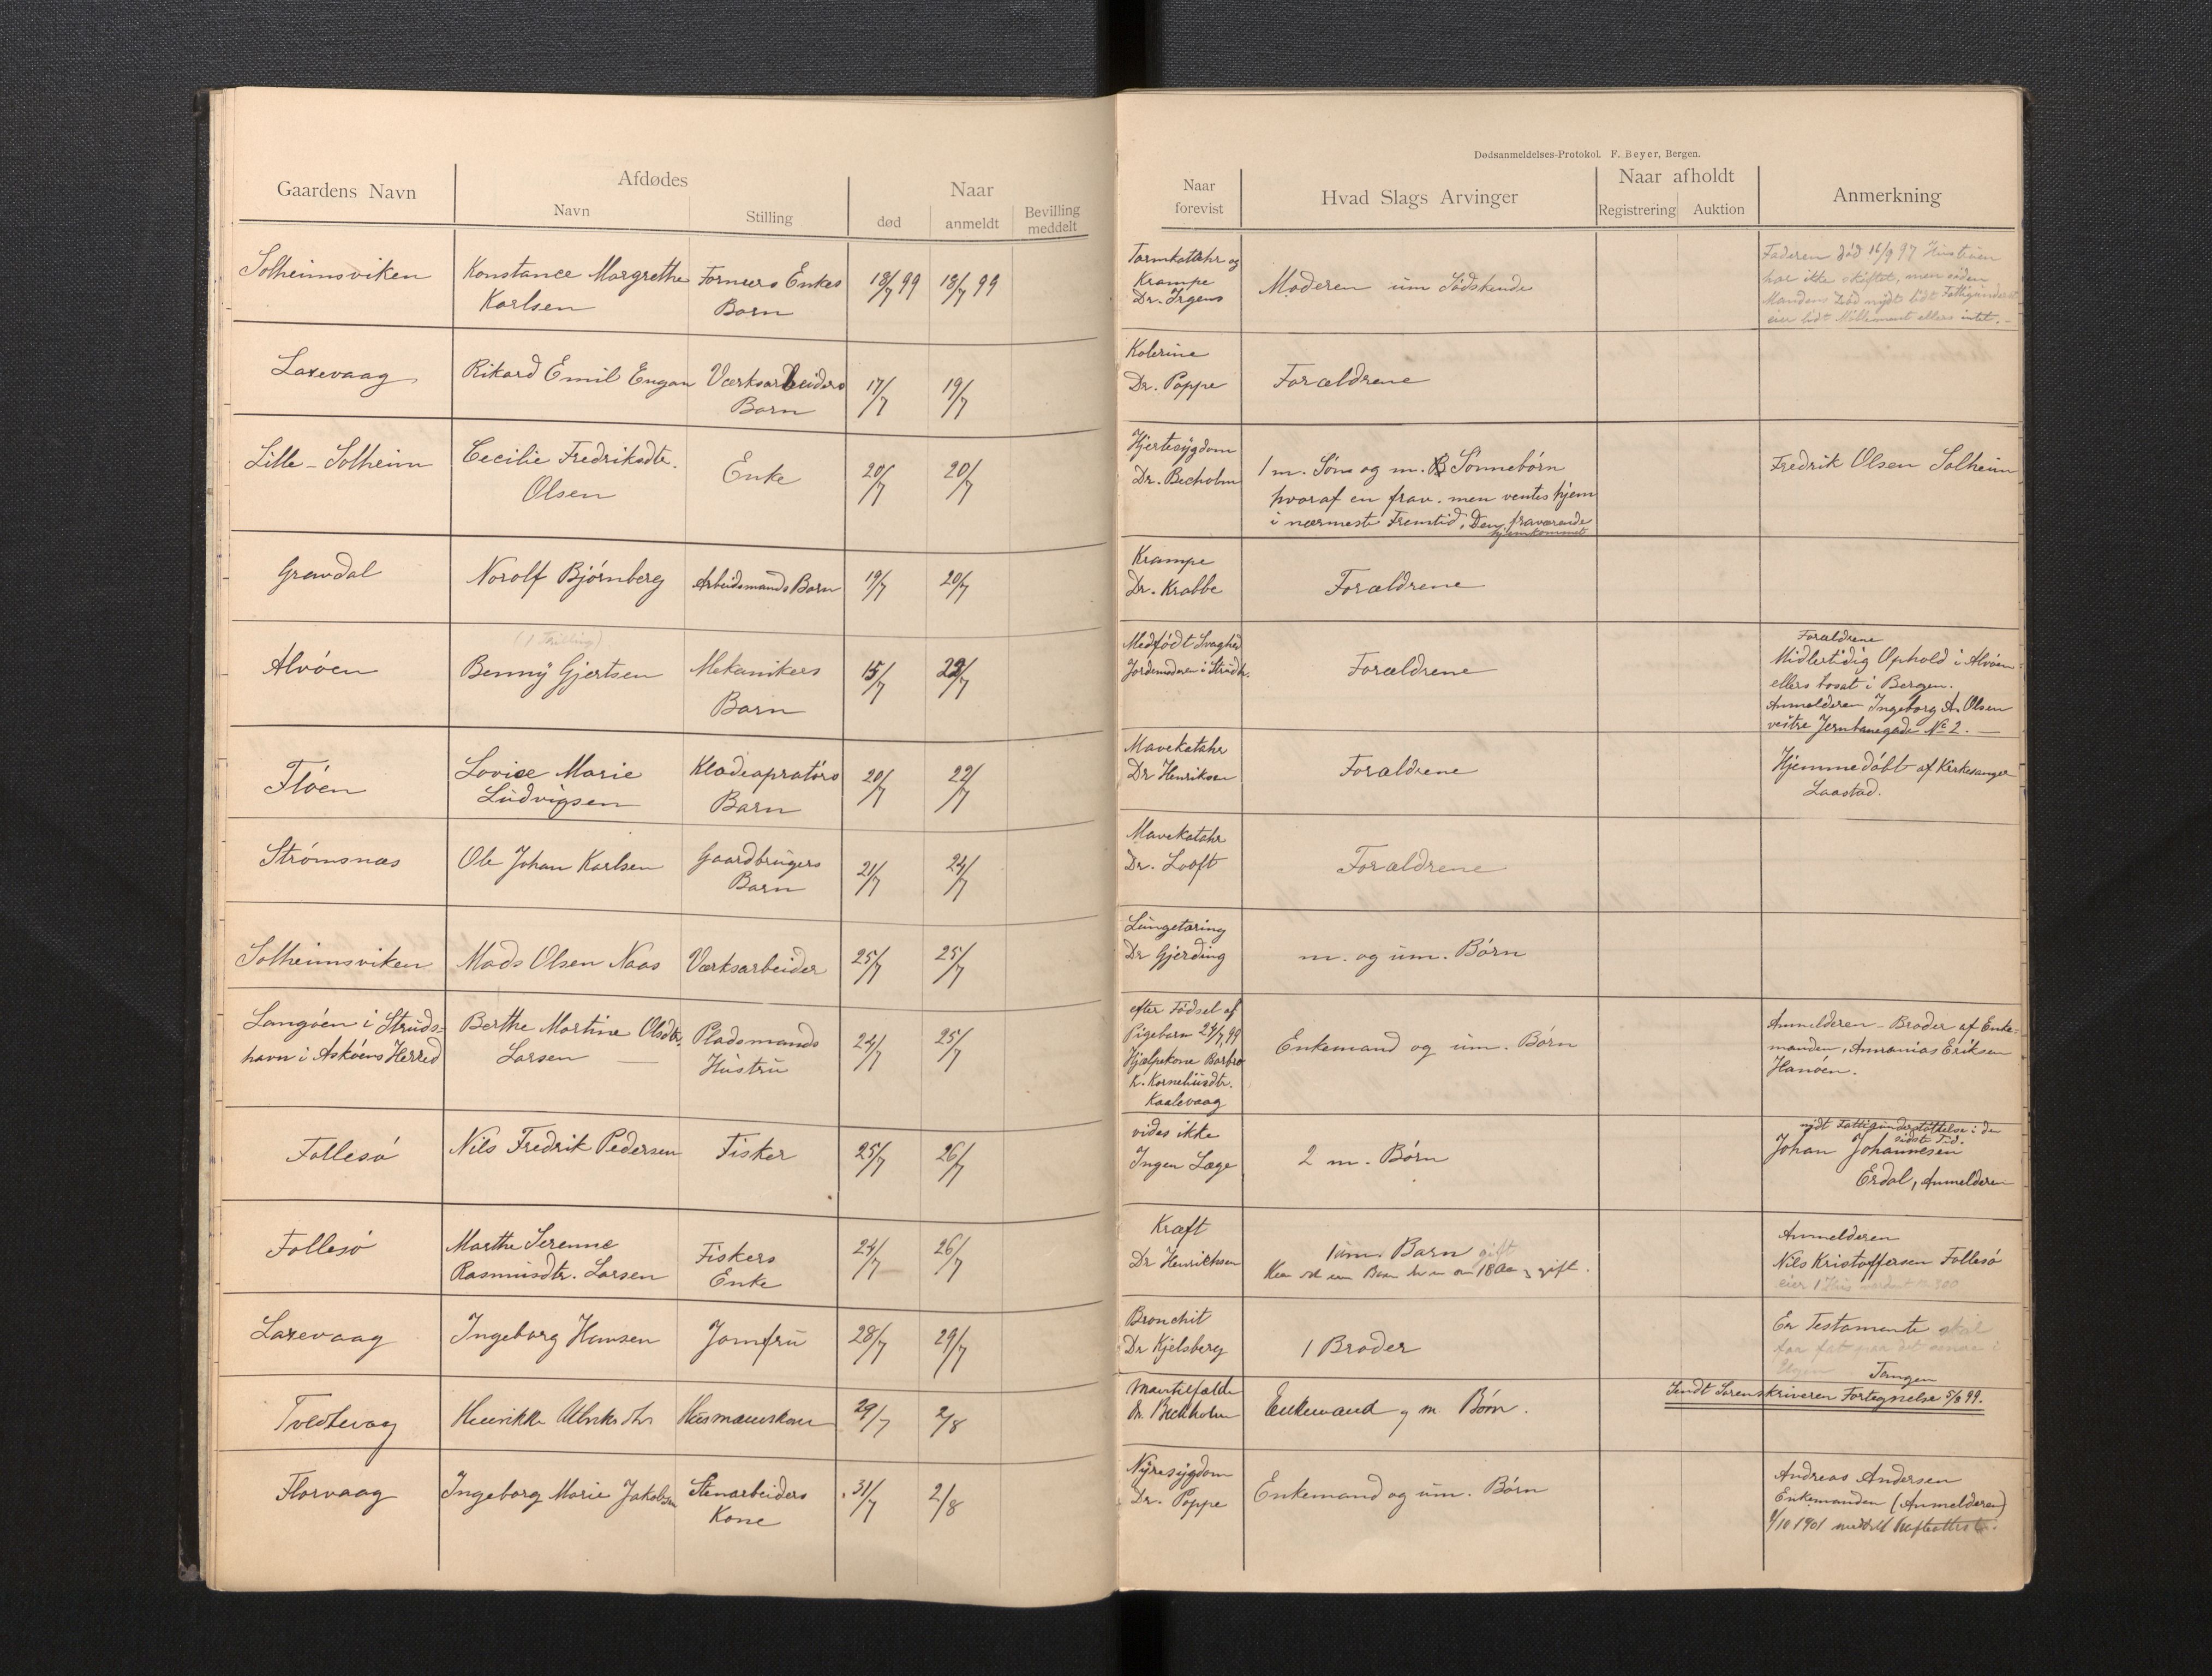 Dødsanmeldelses-Protokol. F. Beyer, Bergen.
Gaardens Navn
Afdødes
Navn
Stilling
Naar
død
anmeldt
Bevilling
meddelt
Naar
forevist
Hvad Slags Arvinger
Naar afholdt
Registrering
Auktion
Anmerkning
Solheimsviken
Konstance Margrethe
Karlsen
Formers Enkes
Barn
18/7 99
18/7 99
Tarmkattahr og
Krampe
Dr. Irgens
Moderen um Södskende
Faderen död 16/9 97 Hustruen
har ikke skiftet, men siden
Mandens Död nydt lidt Fattigunderst.
eier lidt Möblement ellers intet. –
Laxevaag
Rikard Emil Engan
Værksarbeiders
Barn
17/7
19/7
Kolerine
Dr. Poppe
Forældrene
Lille – Solheim
Cecilie Fredriksdtr.
Olsen
Enke
20/7
20/7
Hjertesygdom
Dr. Becholm
1 m. Søn og m. Sønnebørn
hvoraf en frav. men ventes hjem
i nærmeste Fremtid. Den fraværende
hjemkommet
Fredrik Olsen Solheim
Gravdal
Norolf Bjørnberg
Arbeidsmands Barn
19/7
20/7
Krampe
Dr. Krabbe
Forældrene
Alvøen
(1 Tvilling)
Benny Gjertsen
Mekanikers
Barn
15/7
22/7
Medfødt Svaghed
Jordemoderen i Strudsh.
Forældrene
Forældrene
Midlertidig Ophold i Alvøen
ellers bosat i Bergen.
Anmelderen Ingeborg A. Olsen
vestre Jernbanegade No 2. –
Fløen
Lovise Marie
Ludvigsen
Klædeapratörs
Barn
20/7
22/7
Mavekatahr
Dr Henriksen
Forældrene
Hjemmedøbt af Kirkesanger
Laastad.
Strømsnæs
Ole Johan Karlsen
Gaardbrugers
Barn
21/7
24/7
Mavekatahr
Dr. Looft
Forældrene
Solheimsviken
Mads Olsen Naas
Værksarbeider
25/7
25/7
Lungetæring
Dr Gjerding
m. og um. Børn
Langøen i Struds-
havn i Askøens Herred
Berthe Martine Olsdtr.
Larsen –
Pladsmands
Hustru
24/7
25/7
efter Fødsel af
Pigebarn 24/7 99
Hjælpekone Barbro
K. Korneliusdtr.
Kaalevaag
Enkemand og um. Børn
Anmelderen – Broder af Enke-
manden, Annanias Eriksen
Hanøen.
Follesø
Nils Fredrik Pedersen
Fisker
25/7
26/7
vides ikke
Ingen Læge
2 m. Børn
nydt Fattigunderstøttelse i den
sidste Tid.
Johan Johannesen
Erdal, Anmelderen
Follesø
Marthe Serenne
Rasmusdtr. Larsen
Fiskers
Enke
24/7
26/7
Kræft
Dr Henrichsen
1 um. Barn gift
18 Aar og gift.
Anmelderen
Nils Kristoffersen Follesø
eier 1 Hus
Laxevaag
Ingeborg Hansen
Jomfru
28/7
29/7
Bronchit
Dr Kjelsberg
1 Broder
Er Testamente skal
faa fat paa det i
Ugen
Tangen
Tveitevaag
Henrikke Ulriksdtr
Husmandskone
29/7
2/8
Mavetilfælde
Dr. Bechholm
Enkemand og m Børn.
Sendt Sorenskriveren Fortegnelse 5/8 99.
Florvaag
Ingeborg Marie Jakobsen
Stenarbeiders
Kone
31/7
2/8
Nyresygdom
Dr. Poppe
Enkemand og um. Børn
Andreas Andersen
Enkemanden (Anmelderen)
1/10 1901 meddelt Skifteattest.